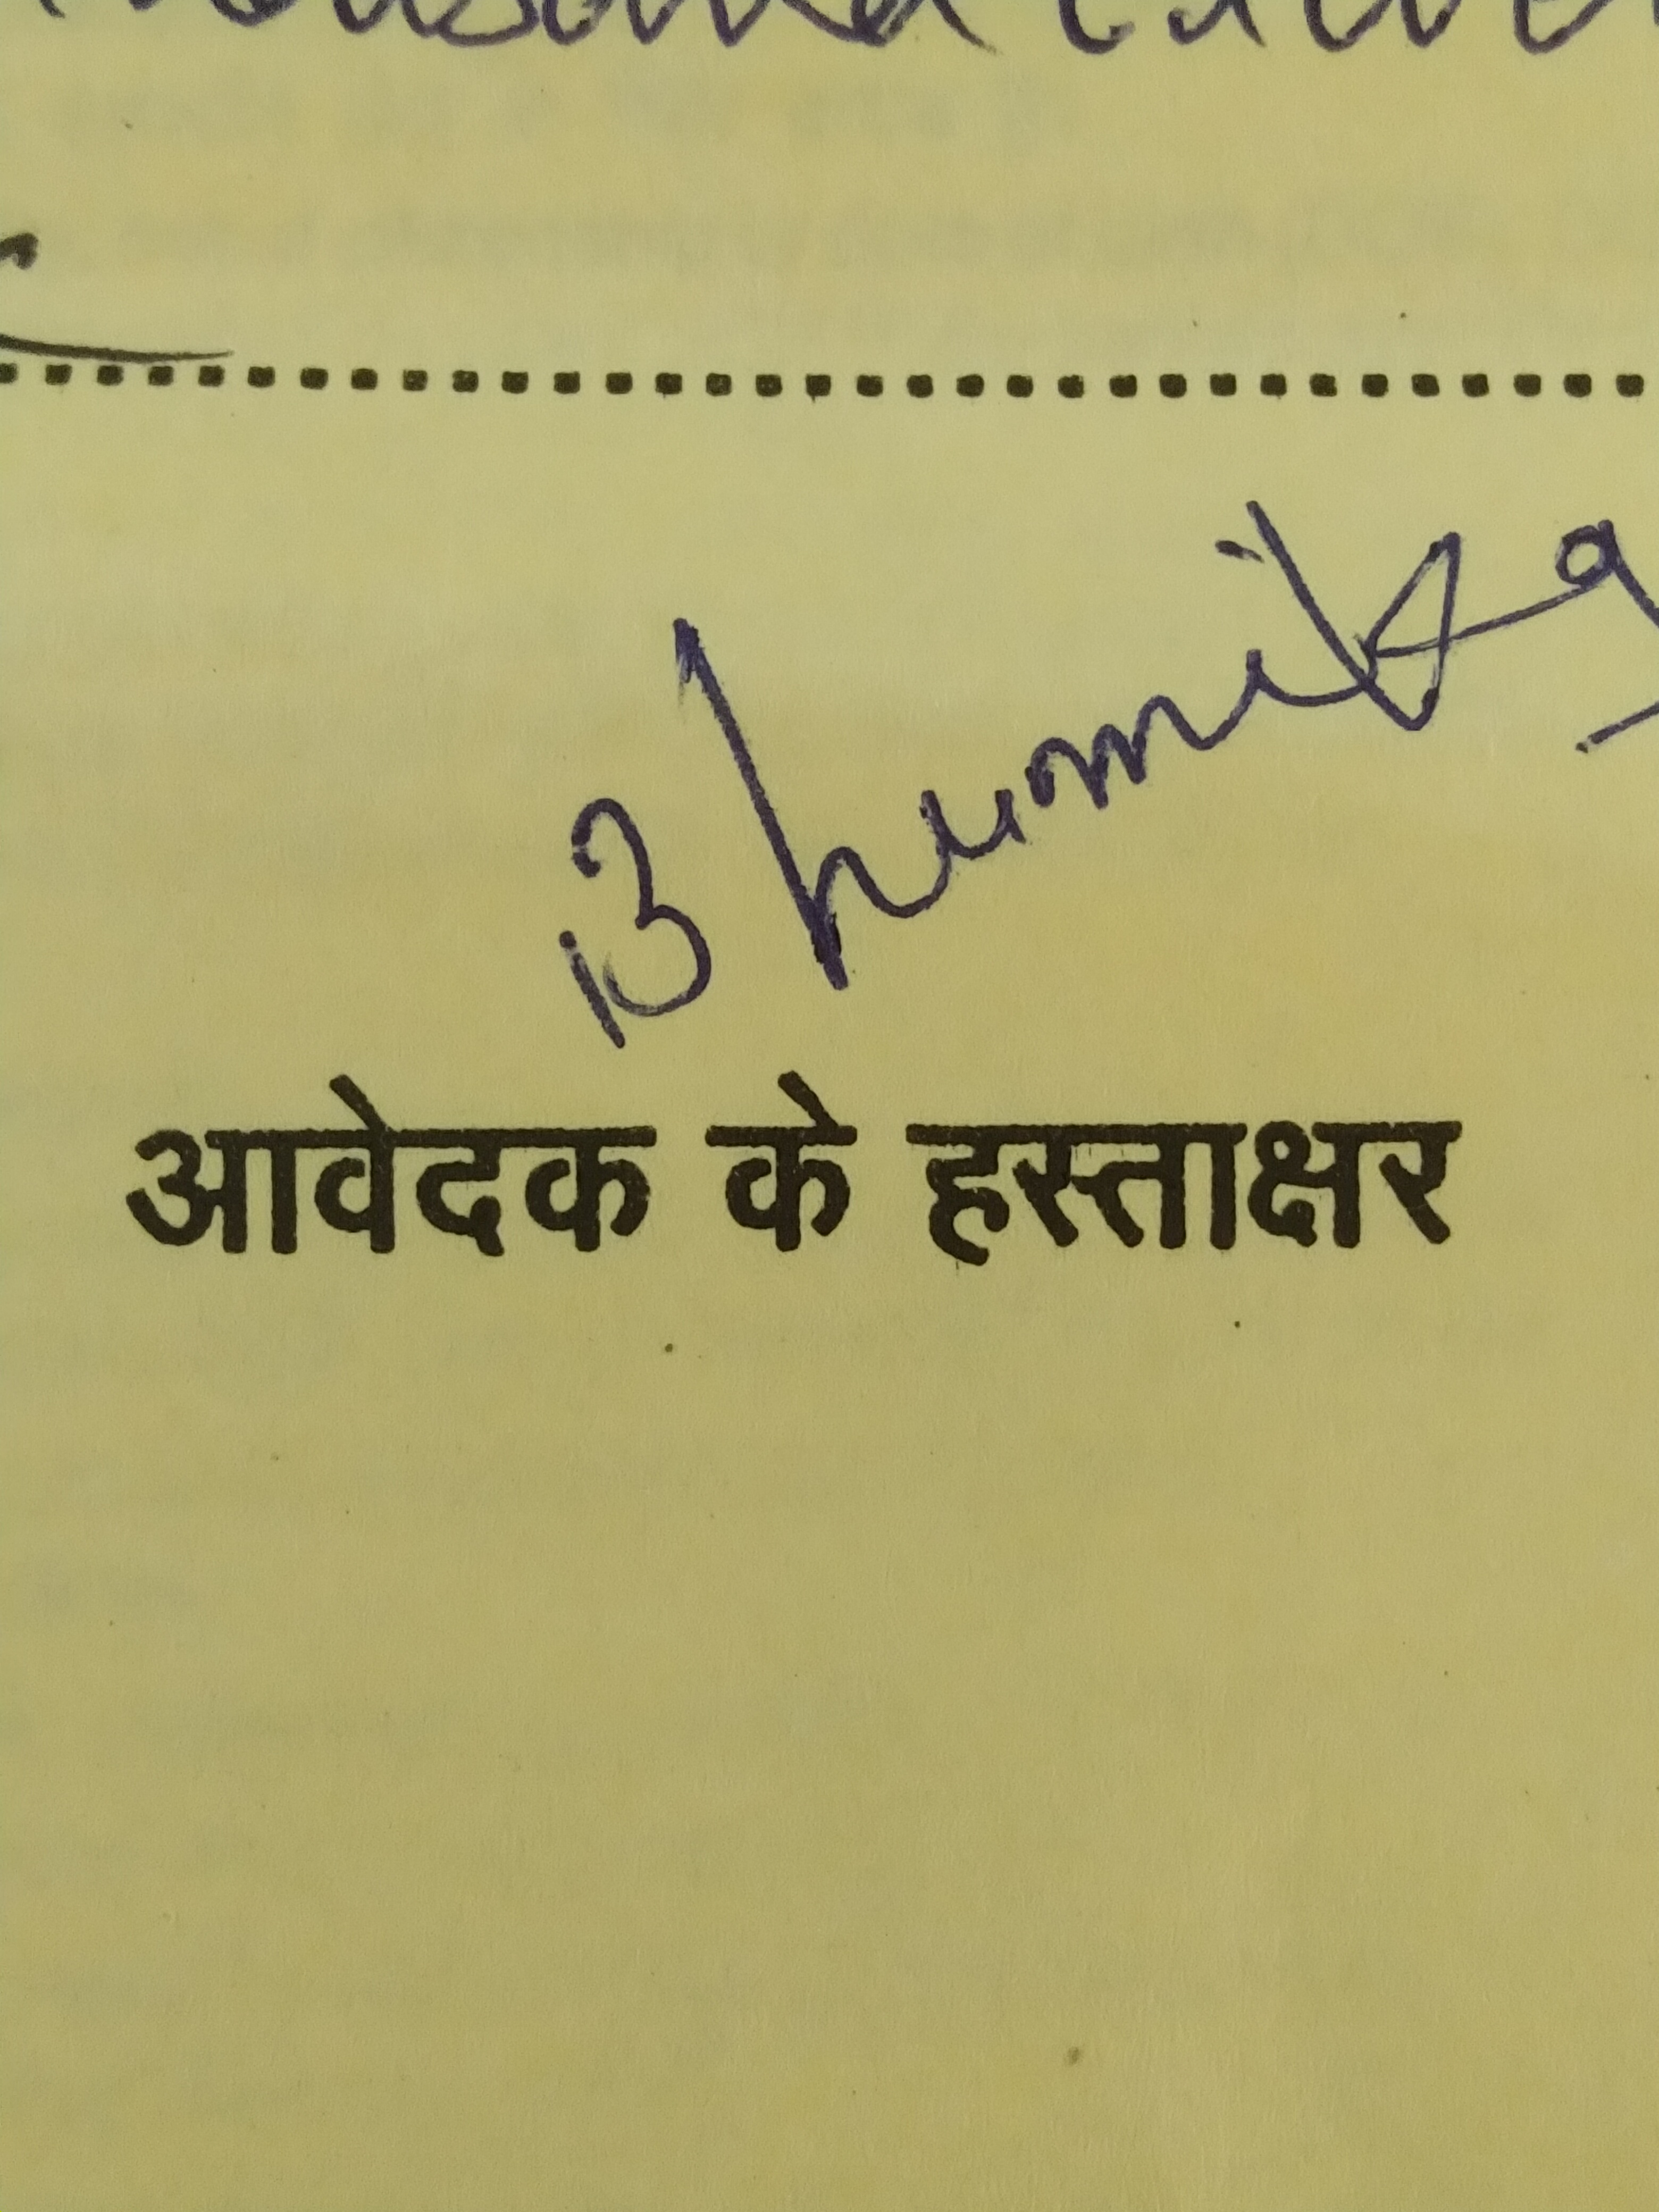 Bhumika
आवेदक के हस्ताक्षर